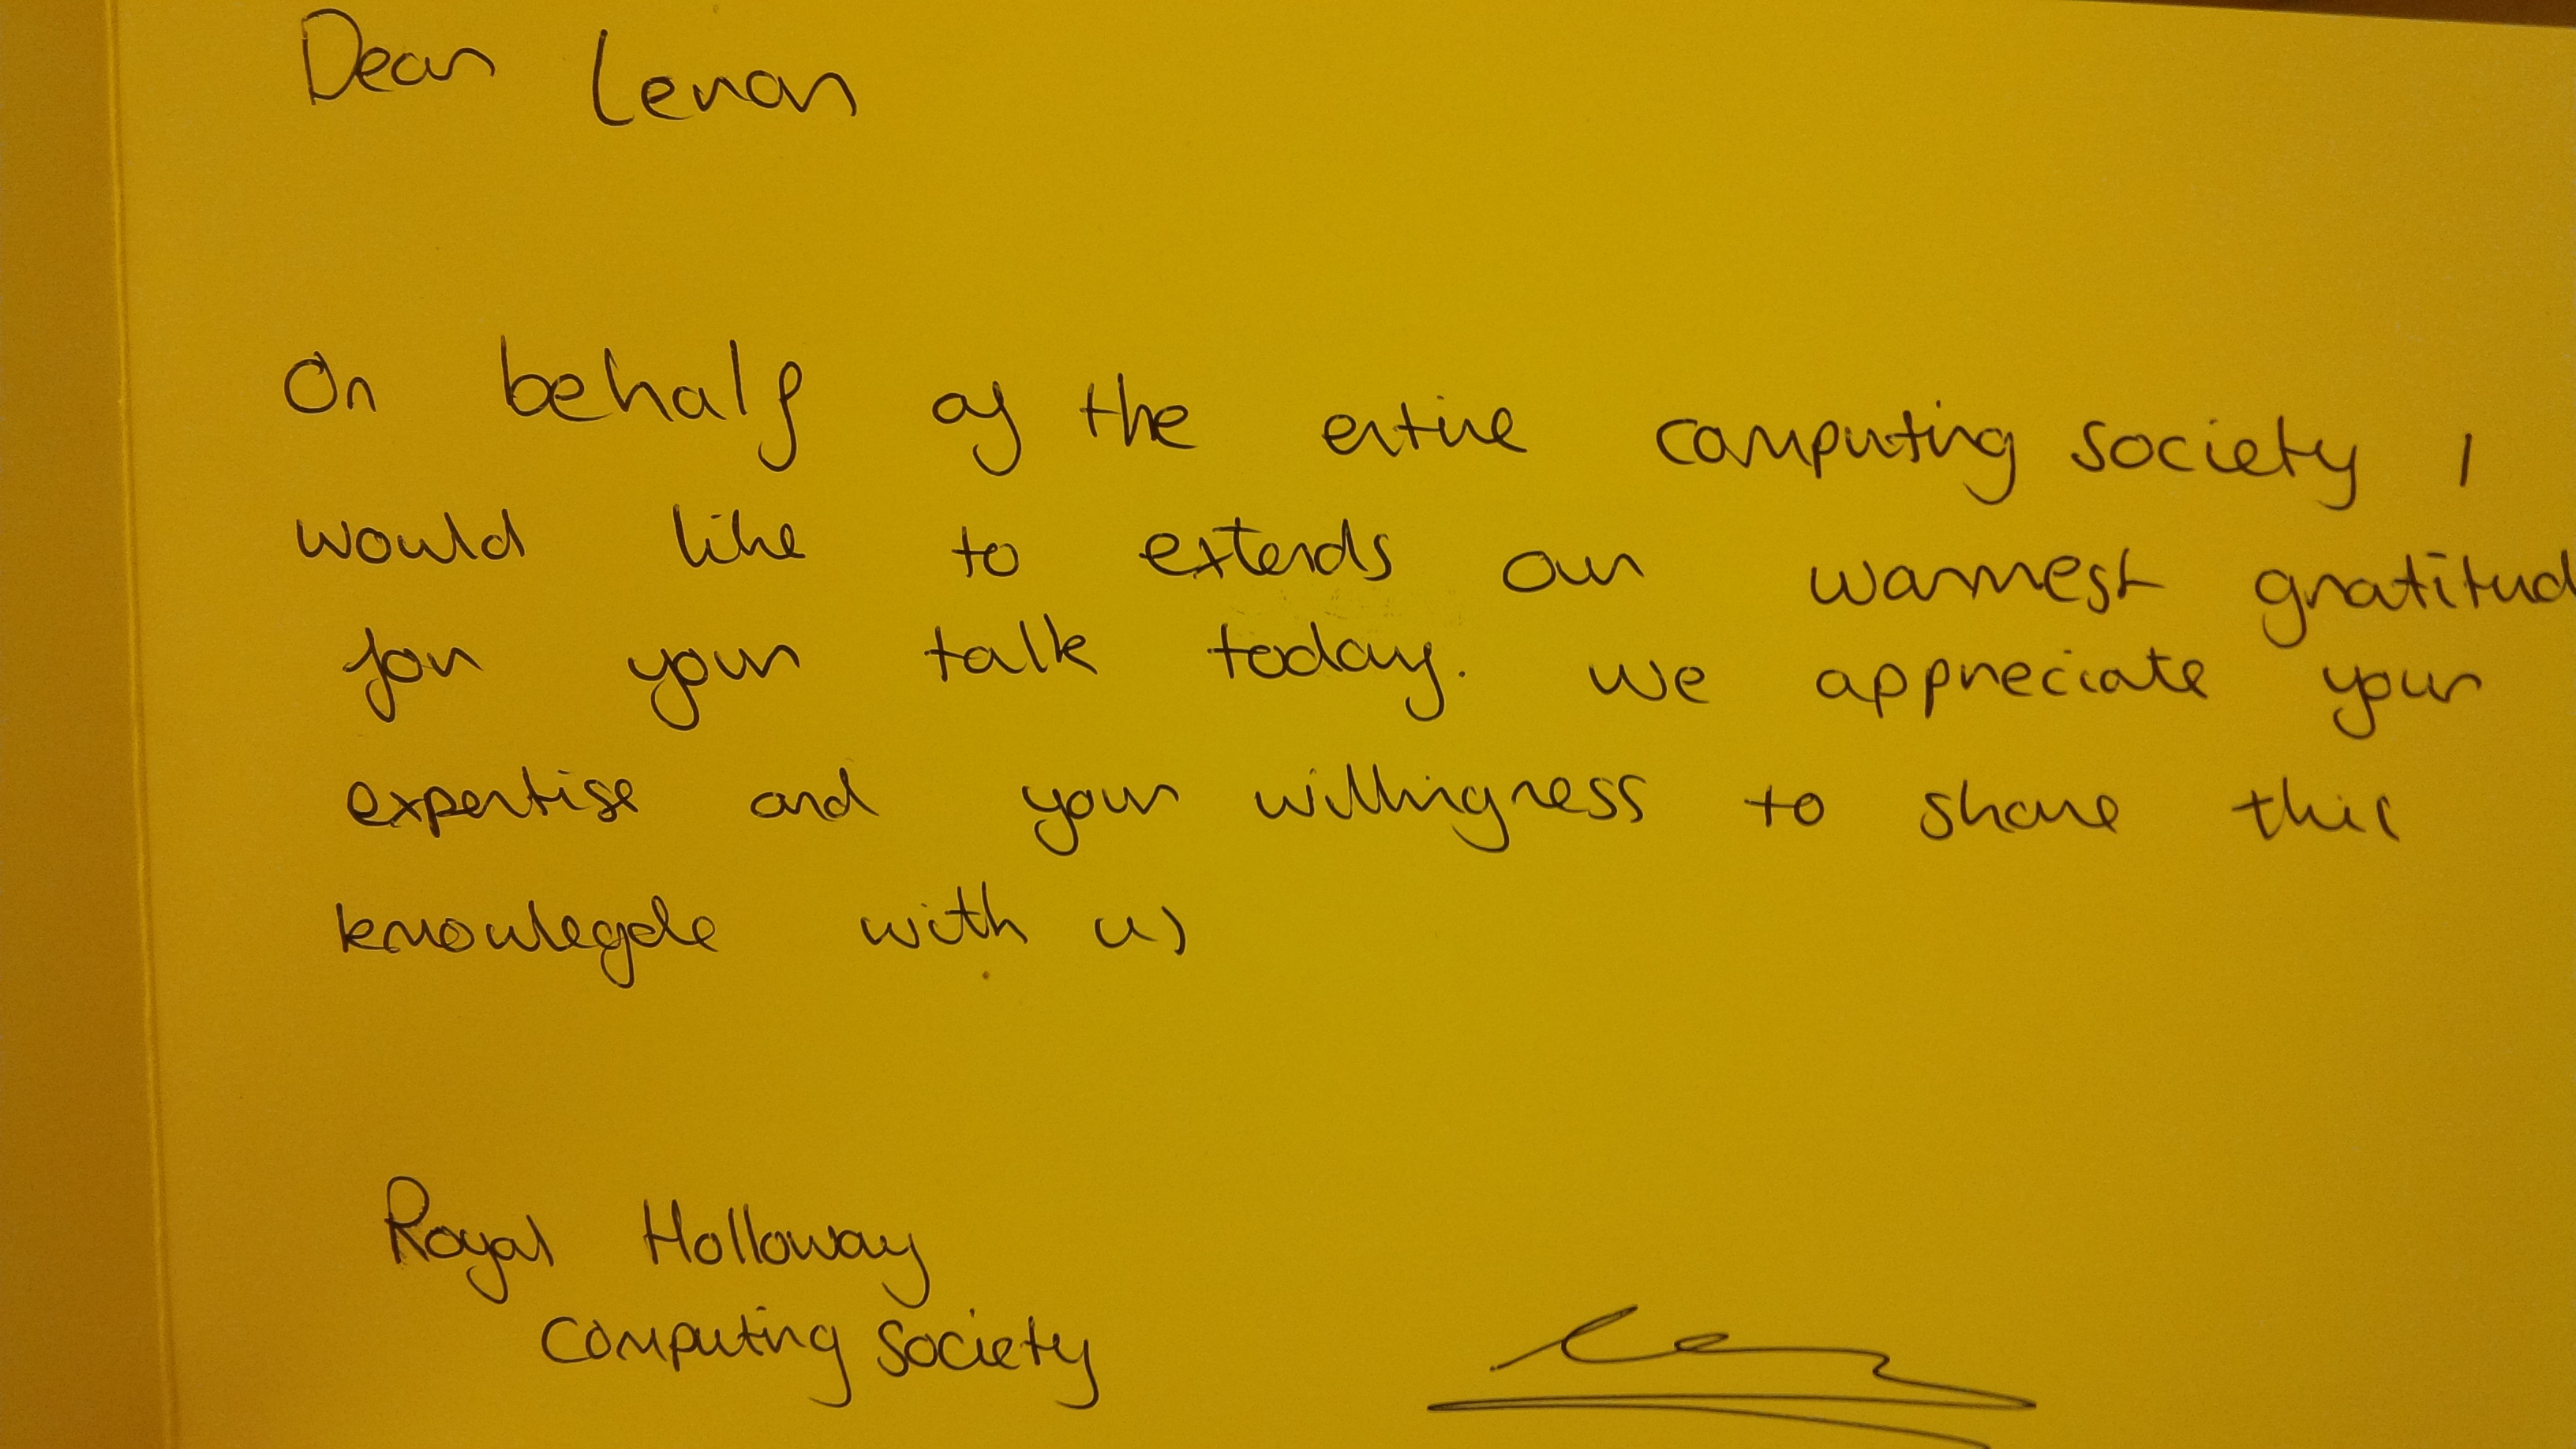 Dear Lenan
On behalf of the entire computing society I
would like to extends our warmest gratitud
for your talk today. We appreciate your
expertise and your willingness to share this
knowlegde with us
Royal Holloway
Computing Society